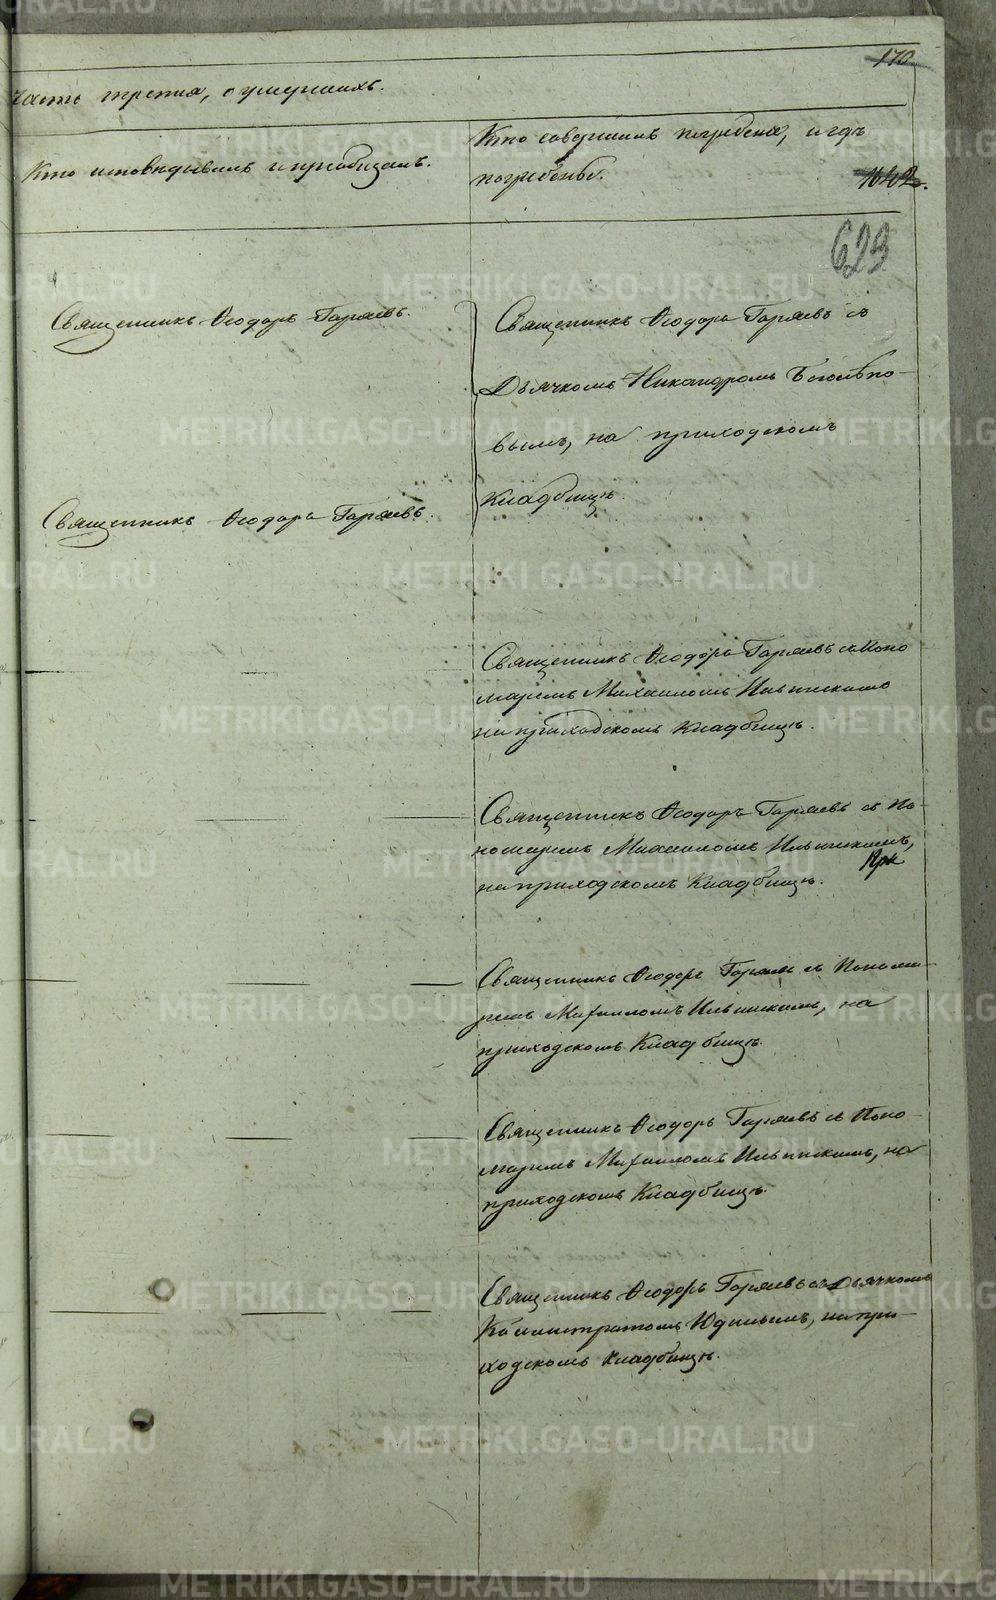 170
Часть третия, о умершихъ.
Кто исповѣдывалъ и приобщалъ.
Кто совершалъ погребение, и гдѣ
погребены.
1042.
623
Священникъ Ѳеодоръ Гаряевъ.
Священникъ Ѳеодоръ Гаряевъ съ
Дьячкомъ Никандромъ Боголѣпо-
вымъ, на приходскомъ
Кладбищѣ.
Священникъ Ѳеодоръ Гаряевъ.
Священникъ Ѳеодоръ Гаряевъ съ Поно
маремъ Михаиломъ Ильинскимъ
на приходскомъ Кладбищѣ.
Священникъ Ѳеодоръ Гаряевъ съ По-
номаремъ Михаиломъ Ильинскимъ,
на приходскомъ Кладбищѣ.
Священникъ Ѳеодоръ Гаряевъ съ Понома-
ремъ Михаиломъ Ильинскимъ, на
приходскомъ Кладбищѣ.
Священникъ Ѳеодоръ Гаряевъ съ Поно-
маремъ Михаиломъ Ильинскимъ, на
приходскомъ Кладбищѣ.
Священникъ Ѳеодоръ Гаряевъ съ Дьячкомъ
Каллистратомъ Юдинымъ, на при-
ходскомъ Кладбищѣ.
METRIKI.GASO-URAL.RU